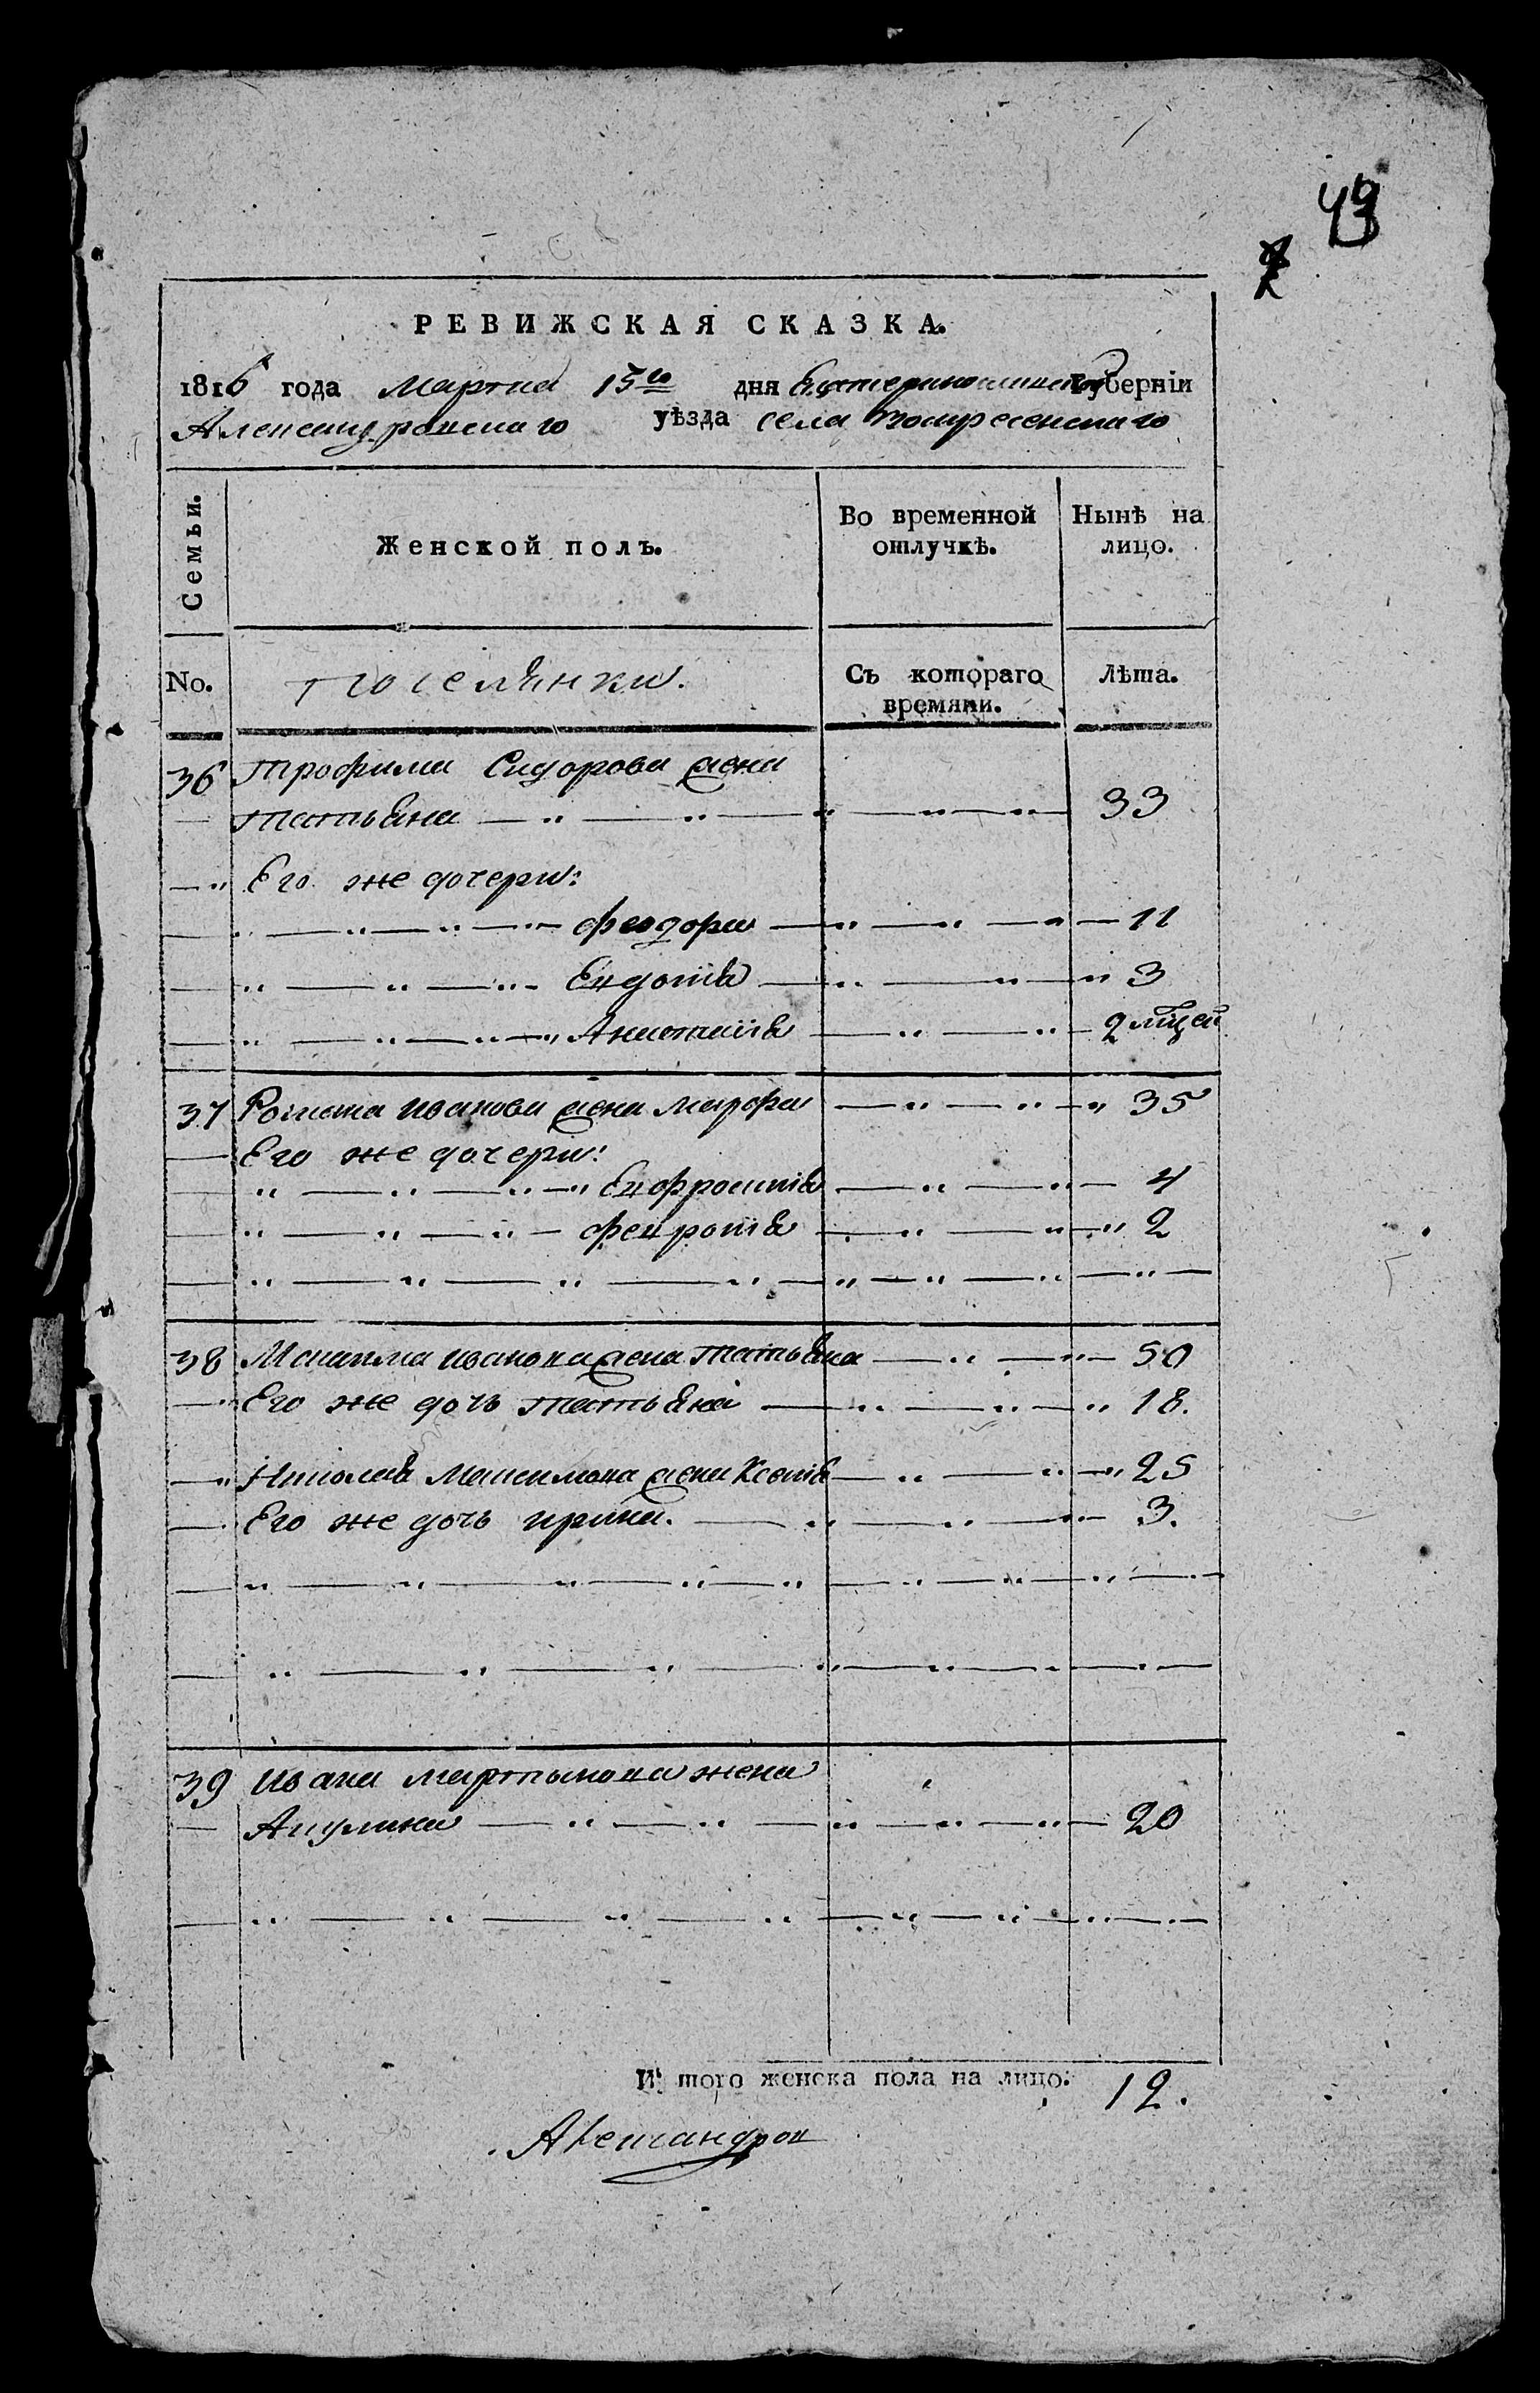 43
РЕВИЖСКАЯ СКАЗКА.
1816 года Марта 15го дня Екатеринославской Губерніи
Александровскаго уѣзда села Воскресенскаго
Семьи.
Женской полъ.
Во временной отлучкѣ.
Нынѣ на лицо.
No.
Поселянки.
Съ котораго времяни.
Лѣта.
36 Трофима Сидорова жена
Татьяна 33
Его же дочери:
Феодора 11
Евдокія 3
Анастасія 2
37 Романа Иванова жена Марфа 35
Его же дочери:
Евфросинія 4
Февронія 2
38 Максима Иванова жена Татьяна 50
Его же дочь Татьяна 18.
Николая Максимова жена Ксенія 25
Его же дочь Ирина. 3.
39 Ивана Мартынова жена
Акулина 20
И того женска пола на лицо: 12.